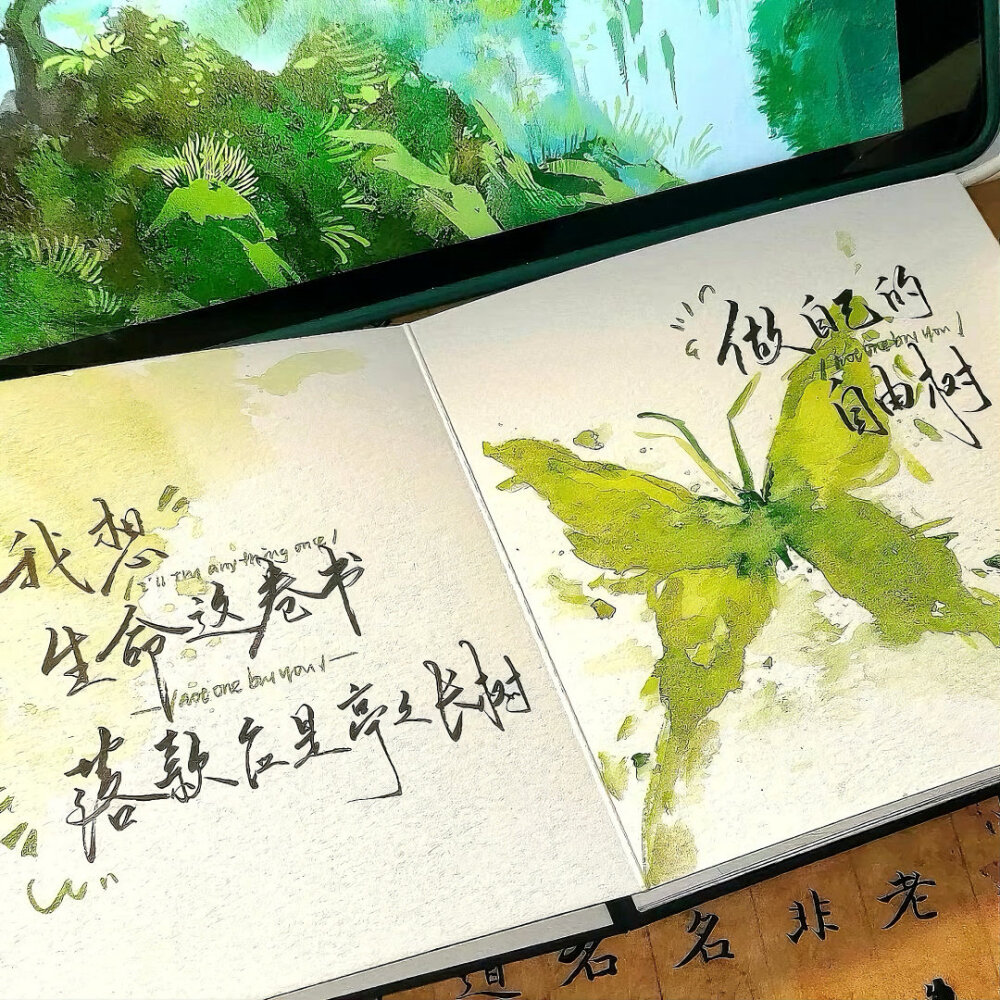 我想
I'll try anything once!
生命这卷书
not one but you!
落款应是亭亭长树
做自己的
not one but you!
自由树
老
非
名
名
道